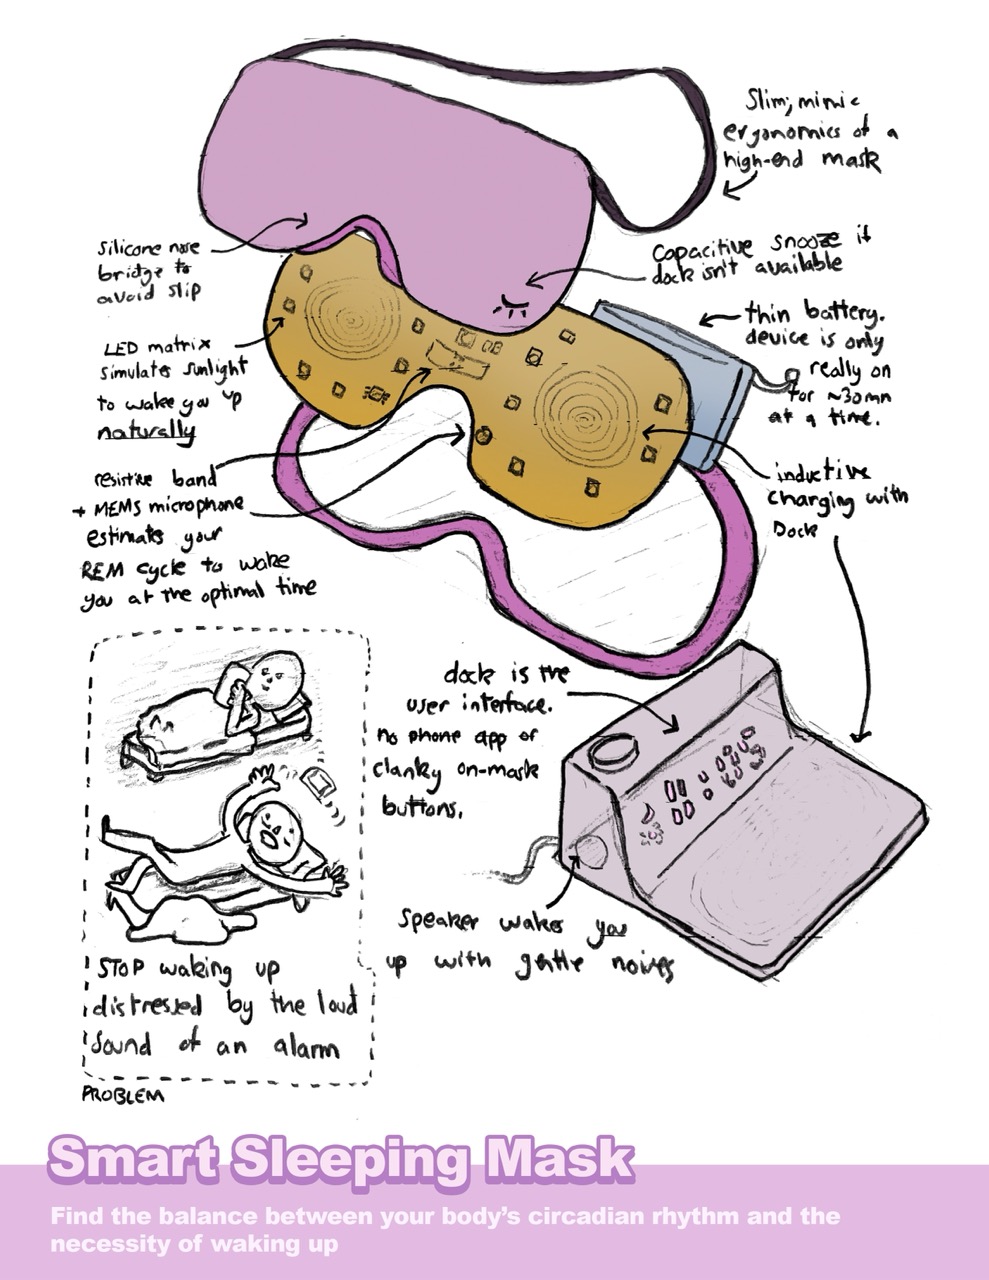 Slim; mimic
ergonomics of a
high-end mask
Silicone nose
bridge to
avoid slip
Capacitive snooze if
dock isn't available
thin battery.
device is only
really on
for ~30mn
at a time.
LED matrix
simulates sunlight
to wake you up
naturally
resistive band
+ MEMS microphone
estimates your
REM cycle to wake
you at the optimal time
inductive
charging with
Dock
dock is the
user interface.
no phone app or
clanky on-mask
buttons.
Speaker wakes you
up with gentle noises
STOP waking up
distressed by the loud
sound of an alarm
PROBLEM
Smart Sleeping Mask
Find the balance between your body's circadian rhythm and the
necessity of waking up